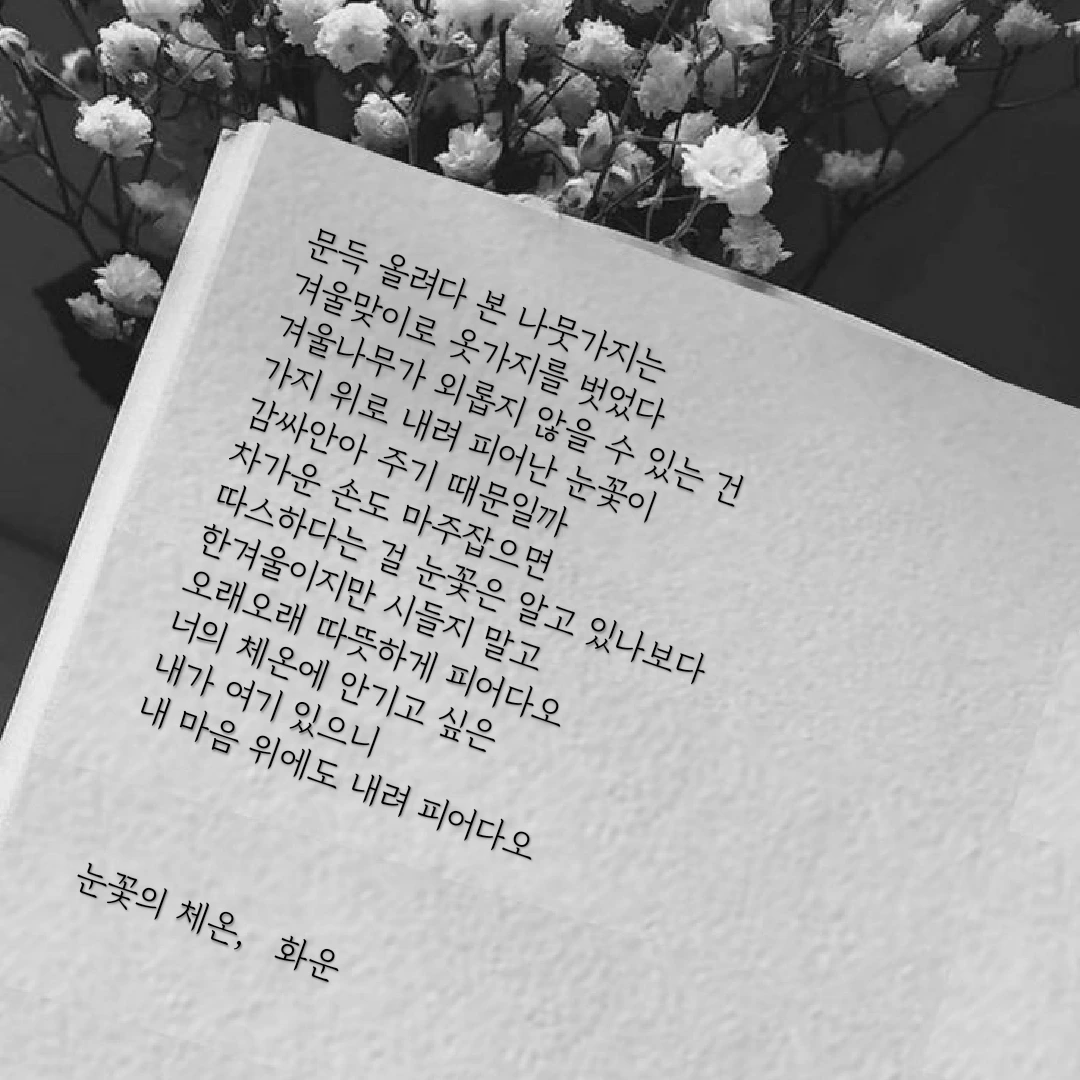 문득 올려다 본 나뭇가지는
겨울맞이로 옷가지를 벗었다
겨울나무가 외롭지 않을 수 있는 건
가지 위로 내려 피어난 눈꽃이
감싸안아 주기 때문일까
차가운 손도 마주잡으면
따스하다는 걸 눈꽃은 알고 있나보다
한겨울이지만 시들지 말고
오래오래 따뜻하게 피어다오
너의 체온에 안기고 싶은
내가 여기 있으니
내 마음 위에도 내려 피어다오
눈꽃의 체온, 화운